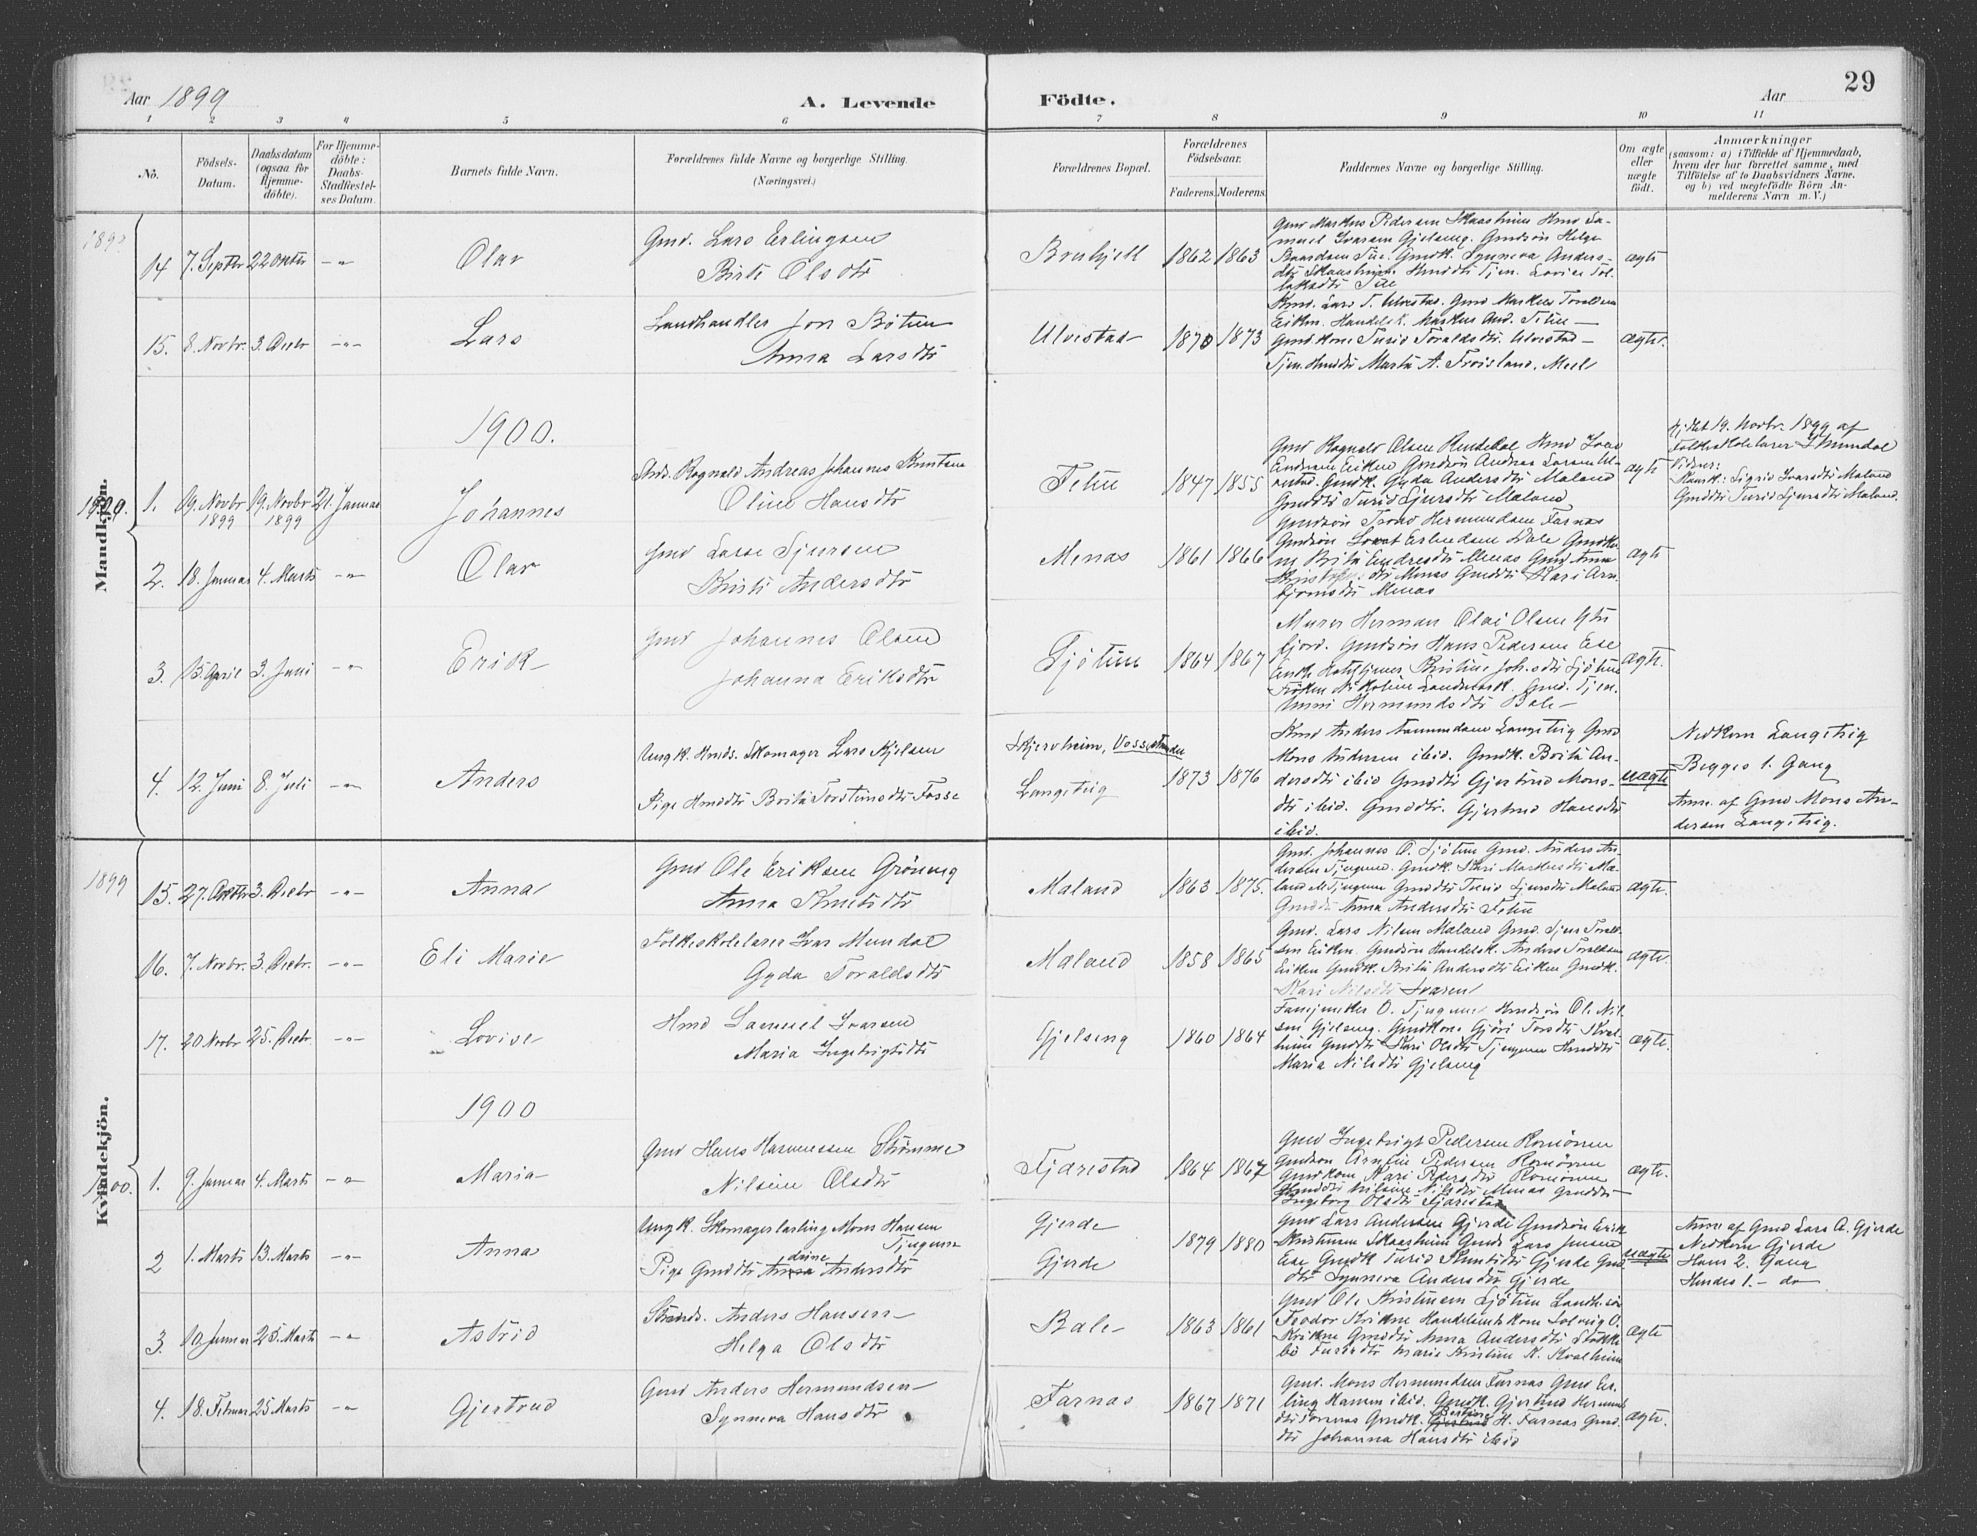 Aar 1899
A. Levende
Födte.
Aar
29
1 2 3 4 5 6 7 8 9 10 11
No.
Födsels-
Datum.
Daabsdatum
(ogsaa for
Hjemme-
döbte).
For Hjemme-
döbte:
Daabs-
Stadfæstel-
ses Datum.
Barnets fulde Navn.
Forældrenes fulde Navne og borgerlige Stilling.
(Næringsvei.)
Forældrenes Bopæl.
Forældrenes
Födselsaar.
Faderens.
Moderens.
Faddernes Navne og borgerlige Stilling.
Om ægte
eller
uægte
födt.
Anmærkninger
(saasom: a) i Tilfælde af Hjemmedaab,
hvem der har forrettet samme, med
Tilföielse af to Daabsvidners Navne.
og b) ved uægtefödte Börn An-
melderens Navn m. V.)
Mandkjön.
14 7. Septbr 22 Oktbr -"- Olav
Gmd. Lars Erlingsen
Brita Olsdtr
1862 1863
Gmd Markus Pedersen Skaasheim Hmd Sa-
muel Ivarsen Gjelseng. Gmdsön Helge
Tue. Gmdk. Synneva Anders-
ægte
15. 8. Novbr. 3. Decbr -"- Lars
Landhandler Jon Bötun
Anna Larsdtr
Ulvestad 1870 1873
Kmd. Lars T. Ulvestad. Gmd Markus Toraldsen
Eiken. Handelsk. Markus And. Fetue
Gmdkone Turid Toraldsdtr. Ulvestad
Tjen. Hmdtr Marta A. Froisland, Meel
ægte.
1900.
1900.
1. 19. Novbr 1899 19. Novbr 1899 21. Januar Johannes
Strds. Ragnald Andreas Johannes Knutsen
Oline Hansdtr
Fetue 1847 1855
Gmd Ragnald Olsen Rendedal Hmd Ivar
Endresen Eiken Gmdsön Andreas Larsen Ul-
vestad. Gmdk. Gyda Andersdtr Maland
Gmddtr Turid Sjursdtr Maland
ægte
Hjdbt 19. Novbr. 1899 af
Folkeskolelærer I Mundal
Vidner:
Sigrid Ivarsdtr Maland
Gmddtr Turid Sjursdtr Maland.
2. 18. Januar 4. Marts -"- Olav
Gmd Lasse Sjursen
Kristi Andersdtr
Menas 1861 1866
Hermundsen Farnas
Gmdsön Erlendsen Dale Gmdko-
ne Brita Endresdtr Menas Gmd Anna
Menas Gmddtr Kari Arn-
bjornsdtr Menas
ægte
3. 15. April 3. Juni -"- Erik
Gmd Johannes Olsen
Johanna Eriksdtr
Sjötun 1864 1867
Murer Herman Olai Olsen
fjord. Gmdsön Hans Pedersen Ese
Kristine Johsdtr Sjötun
Fröken Nikoline Landmark. Gmd. Tjen.
Unni Hermundsdtr Bale
ægte.
4. 12. Juni 8. Juli -"- Anders
Ungk. Hmds. Skomager Lars Kjelsen
Pige Hmddtr Brita Torsteinsdtr Fosse
Skjerveheim, Vossestranden
Langeteig
1873 1876
Kmd Anders Aamundsen Langeteig Gmd
Mons Andersen ibid. Gmdk. Brita An-
dersdtr ibid Gmddtr Gjertrud Mons-
dtr ibid. Gmddtr. Gjertrud Hansdtr
ibid.
uægte
Nedkom Langeteig
Begges 1. Gang
Anm. af Gmd Mons An-
dersen Langeteig.
Kvindekjön.
1899
15. 27. Oktbr 3. Decbr -"- Anna
Gmd Ole Eriksen Gröneng
Anna Knutsdtr
Maland 1863 1875.
Gmd. Johannes O. Sjötun Gmd. Anders An-
dersen Tjugum. Gmdk. Kari Markusdtr Ma-
land Tjugum Gmddtr Turid Sjursdtr Maland
Gmddtr Anna Andersdtr Fetue
ægte.
16. 7. Novbr. 3. Decbr. -"- Eli Marie
Folkeskolelærer Ivar Mundal
Gyda Toraldsdtr
Maland 1858 1865
Gmd. Lars Nilsen Maland Gmd. Sjur Torald-
sen Eiken. Gmdsön Handelsk. Anders Toraldsen
Eiken Gmdk. Brita Andersdtr Eiken Gmdk.
Kari Nilsdtr Svaren
ægte.
17. 20 Novbr 25. Decbr. -"- Lovise
Hmd Samuel Ivarsen
Maria Ingebrigtsdtr
Gjelseng 1860 1864
Fanejunker O. Tjugum Hmdsön Ole Nil-
sen Gjelseng. Gmdkone Gjöri Torsdtr Kval-
heim Gmddtr Kari Olsdtr Tjugum Hmddtr
Maria Nilsdtr Gjelseng
ægte.
1900
1900.
1. 9. Januar 4. Marts -"- Maria
Gmd Hans Rasmussen Strömme
Nilsine Olsdtr
Fjærestad 1864 1867
Gmd Ingebrigt Pedersen Romören
Gmdsön Arnfin Pedersen Romören
Gmdkone Mari Pedersdtr Romören
Gmddtr Nilsine Nilsdtr Menas Gmddtr
Ingeborg Olsdtr Fjærestad
ægte.
2 1. Marts 13. Marts -"- Anna
Ungk. Skomagerlærling Mons Hansen
Tjugum
Pige Gmddtr Andrine Andersdtr
Gjerde
Gjerde
1879 1880
Gmd Lars Andersen Gjerde Gmdsön Erik
Kristensen Skaasheim Gmds Lars Jensen
Ese Gmdk Turid Knutsdtr Gjerde Gmd-
dtr Synneva Andersdtr Gjerde
uægte
Anm. af Gmd Lars A. Gjerde
Nedkom Gjerde
Hans 2. Gang
Hendes 1. - do
3 10. Januar 25. Marts -"- Astrid
Strands. Anders Hansen
Helga Olsdtr
Bale 1863 1861
Gmd Ole Kristensen Sjötun
Teodor Eriksen Solveig O.
Eriksen Gmddtr Anna Andersdtr Stokke-
bö Marie Kristine K. Kvalheim
ægte
4. 18. Februar 25. Marts -"- Gjertrud
Gmd Anders Hermundsen
Synneva Hansdtr
Farnas 1867 1871
Gmd. Mons Hermundsen Farnas Gmd Er-
ling Hansen ibid. Gmdk. Gjertrud Hermund-
dtr Farnas Gmdk. H. Farnas Gmd-
dtr Johanna Hansdtr ibid
ægte.